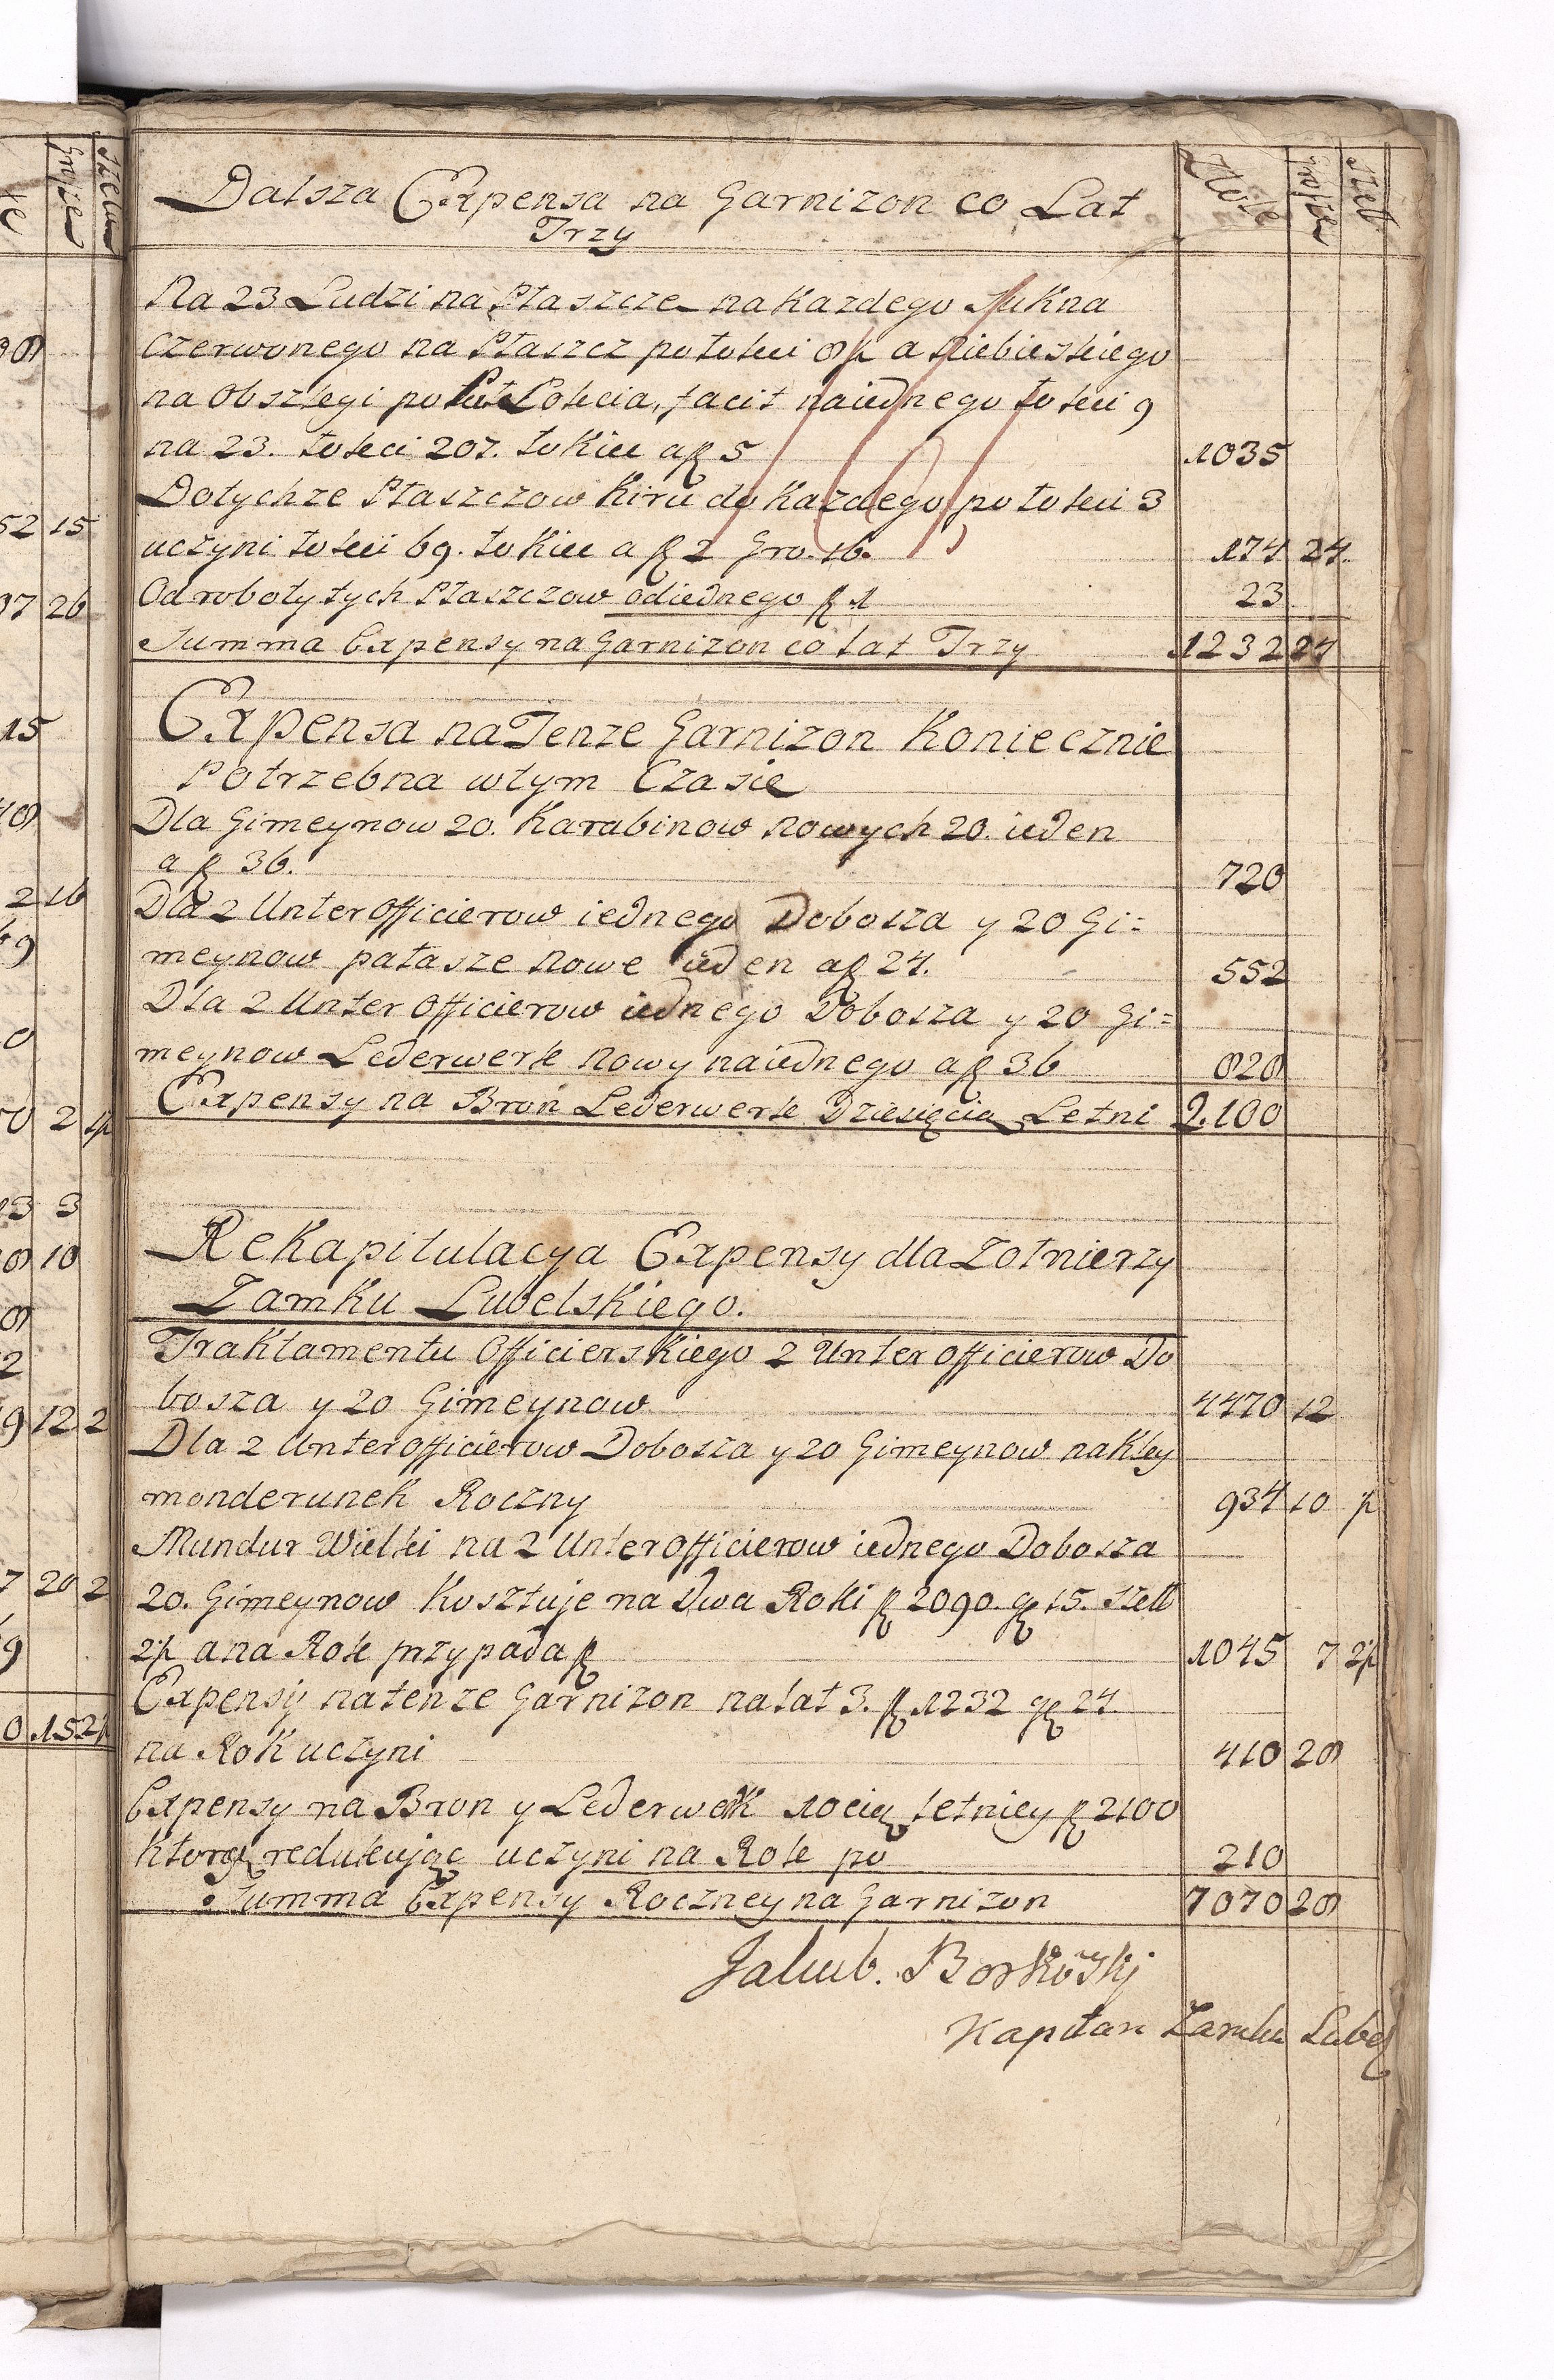 Złote Grosze Szel.
Dalsza Expensa na Garnizon co Lat
Trzy
Na 23 Ludzi na Płaszcze na Kazdego Sukna
czerwonego na Płaszcz po łokci 8½ a Niebieskiego
na Obszlegi po Puł Łokcia, facit na iednego łokci 9
na 23. łokci 207. łokiec a f 5 1035
Do tychze Płaszczow Kiru do Kazdego po łokci 3
uczyni łokci 69. łokiec a f 2 Gro. 16. 174 24.
Od roboty tych Płaszczow od iednego f 1 23
Summa Expensy na Garnizon co lat Trzy 1232 24
Expensa na Tenze Garnizon Koniecznie
Potrzebna w tym Czasie
Dla Gimeynow 20. Karabinow Nowych 20. ieden
a f 36. 720
Dla 2 Unter Officierow iednego Dobosza y 20 Gi=
meynow pałasze Nowe ieden a f 24. 552
Dla 2 Unter Officierow iednego Dobosza y 20 Gi=
meynow Lederwerk Nowy na iednego a f 36 828
Expensy na Broń Lederwerk Dziesięcia Letni 2.100
Rekapitulacya Expensy dla Zołnierzy
Zamku Lubelskiego.
Traktamentu Officierskiego 2 Unter Officierow Do
bosza y 20 Gimeynow 4470 12
Dla 2 Unter Officierow Dobosza y 20 Gimeynow na Kley
monderunek Roczny 934 10 ½
Mundur Wielki na 2 Unter Officierow iednego Dobosza
20. Gimeynow Kosztuje na Dwa Roki f 2090. gr 15. Szell
2½ a na Rok przypada f 1045 7 2½
Expensy na tenze Garnizon na lat 3. f 1232 gr 24.
na Rok uczyni 410 28
Expensy na Bron y Lederwerk 10cią letniey f 2100
ktorą redukując uczyni na Rok po 210
Summa Expensy Roczney na Garnizon 7070 28
Jakub. Borkowskj
Kapitan Zamku Lubel